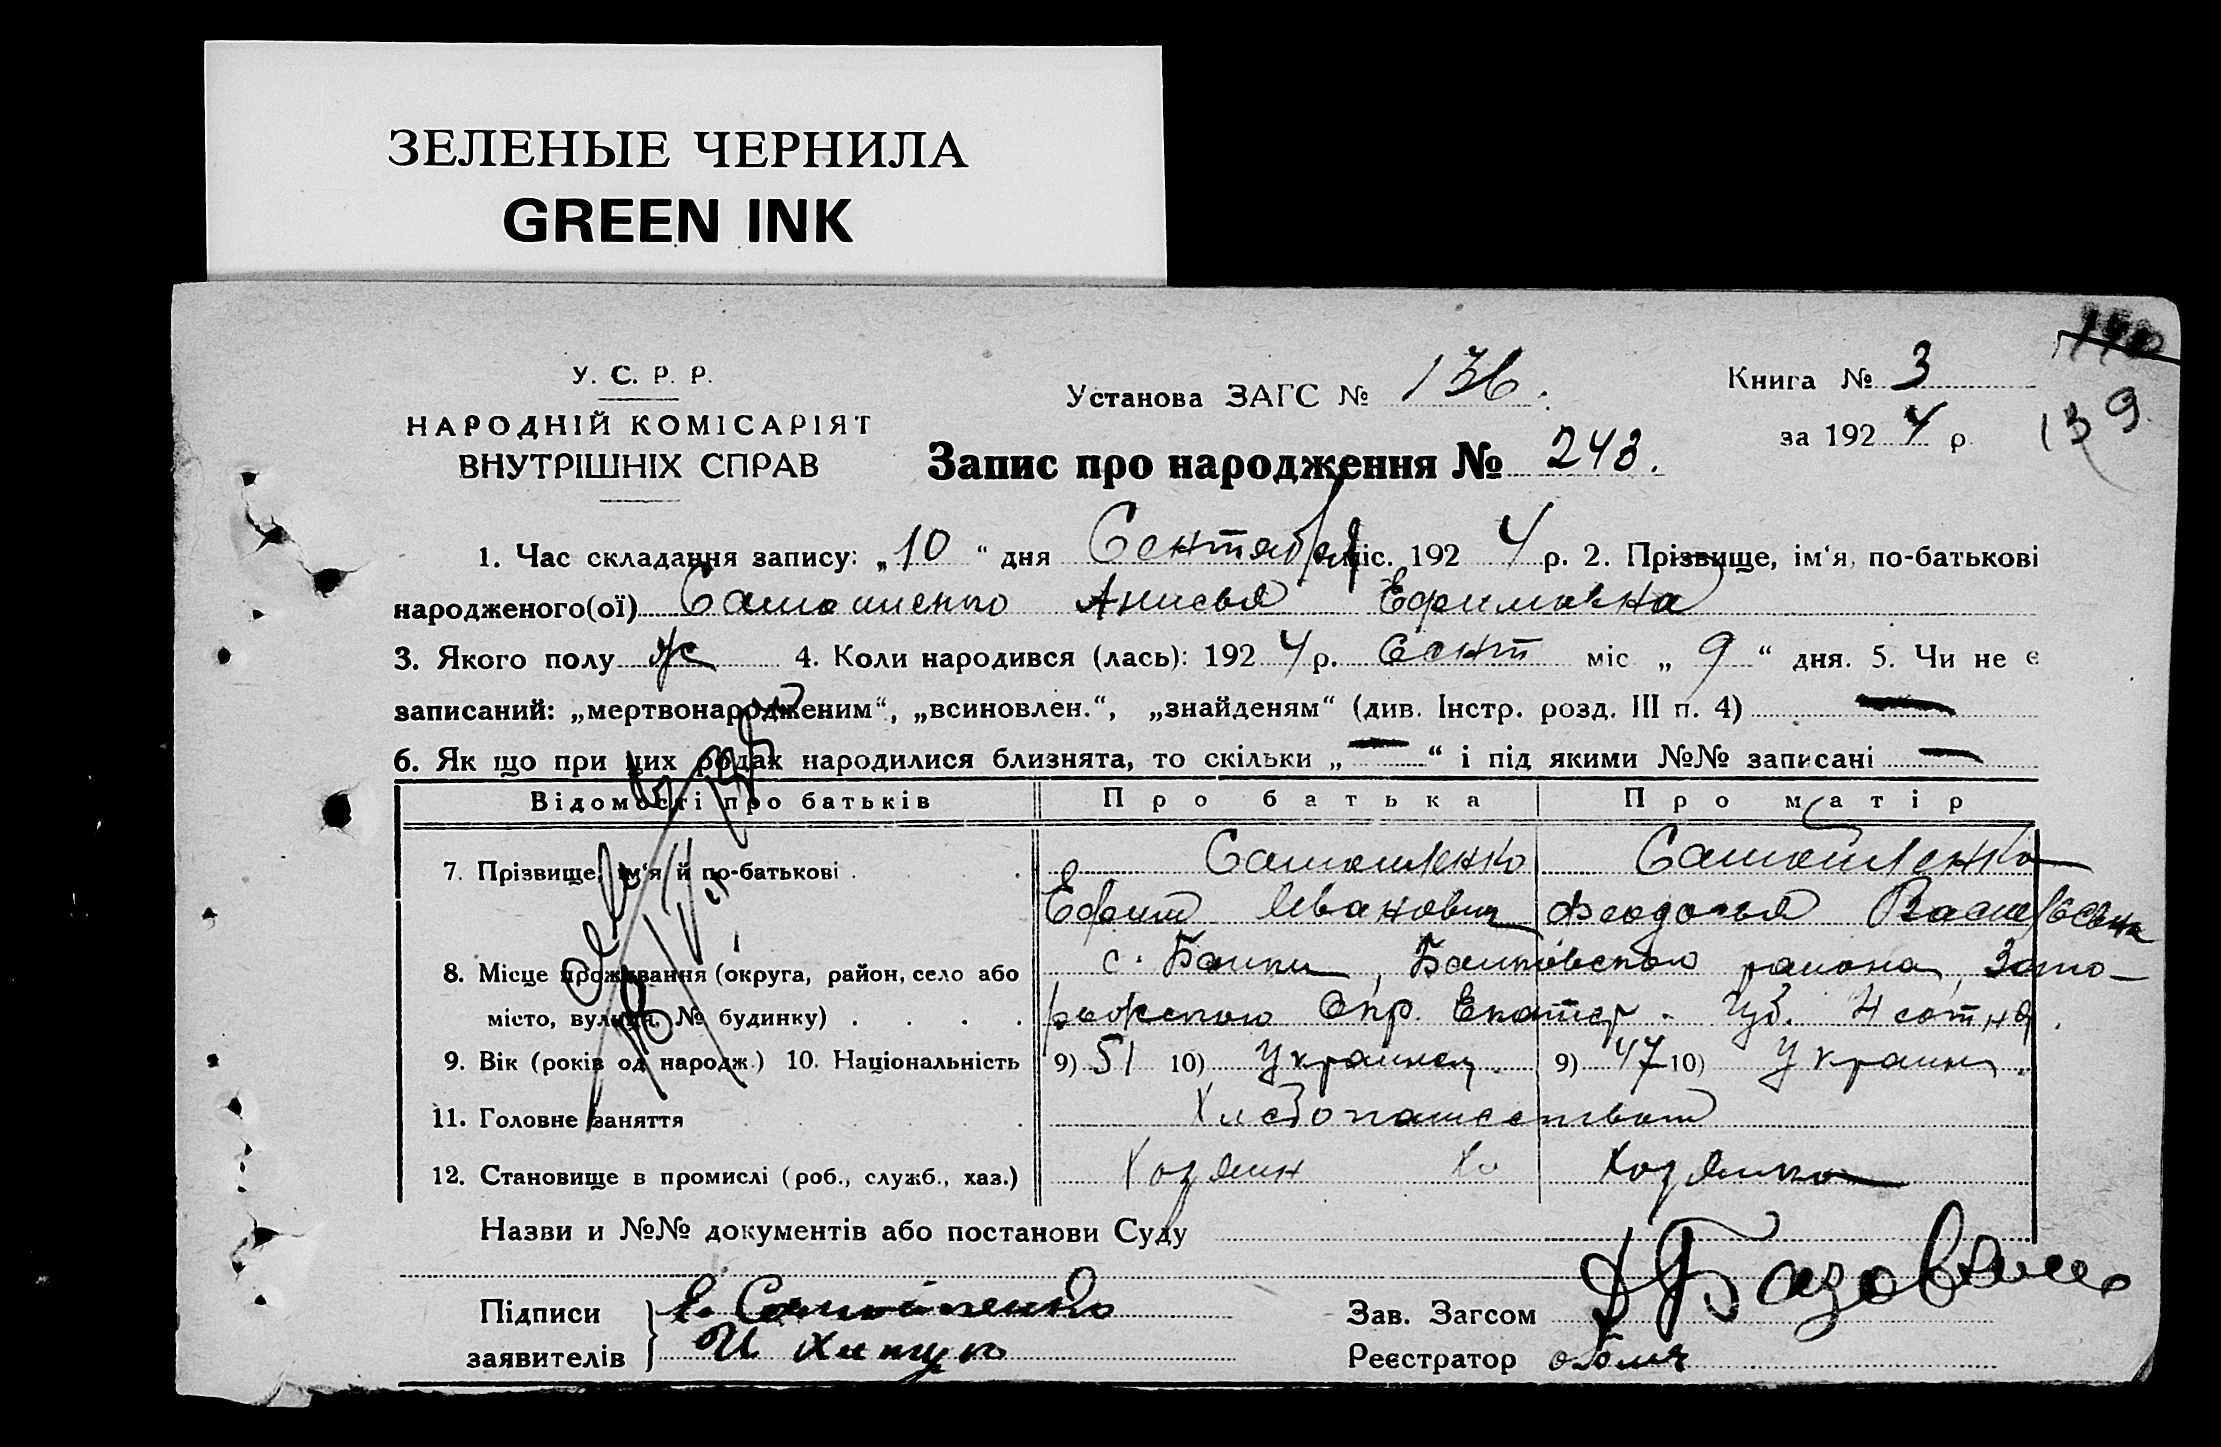 ЗЕЛЕНЫЕ ЧЕРНИЛА
GREEN INK
140
139
У. С. Р. Р.
НАРОДНІЙ КОМІСАРІЯТ
ВНУТРІШНІХ СПРАВ
Установа ЗАГС № 136.
Книга № 3
за 1924 р.
Запис про народження № 243.
1. Час складання запису: „10“ дня Сентября міс. 1924 р. 2. Прізвище, ім‘я, по-батькові
народженого(ої) Самошенко Анисья Ефимовна
3. Якого полу ж 4. Коли народився (лась): 1924 р. Сент міс „9“ дня. 5. Чи не є
записаний: „мертвонародженим“, „всиновлен.“, „знайденям“ (див. Інстр. розд. III п. 4) —
6. Як що при цих родах народилися близнята, то скільки „—“ і під якими №№ записані —
Відомості про батьків Про батька Про матір
7. Прізвище, ім‘я й по-батькові . . . Самошенко Самошенко
Ефим Иванович Феодосья Васильевна
8. Місце проживання (округа, район, село або с. Балки, Балковского района, Запо-
місто, вулиця, № будинку) . . . . рожского Окр. Екатер. Губ. 4 сотня.
9. Вік (років од народж.) 10. Національність 9) 51 10) Украинец. 9) 47 10) Украин.
11. Головне заняття Хлебопашеством
12. Становище в промислі (роб., служб., хаз.) Хозяин Хо Хозяйка
Назви и №№ документів або постанови Суду
Підписи Е. Самошенко
заявителів И
Зав. Загсом
Реєстратор